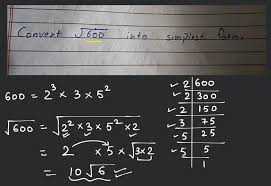 Convert √600 into simplest form.
600 = 2³ × 3 × 5²
√600 = √2² × 3 × 5² × 2
= 2 × 5 × √3 × 2
= 10√6
2 | 600
2 | 300
2 | 150
3 | 75
5 | 25
5 | 5
1